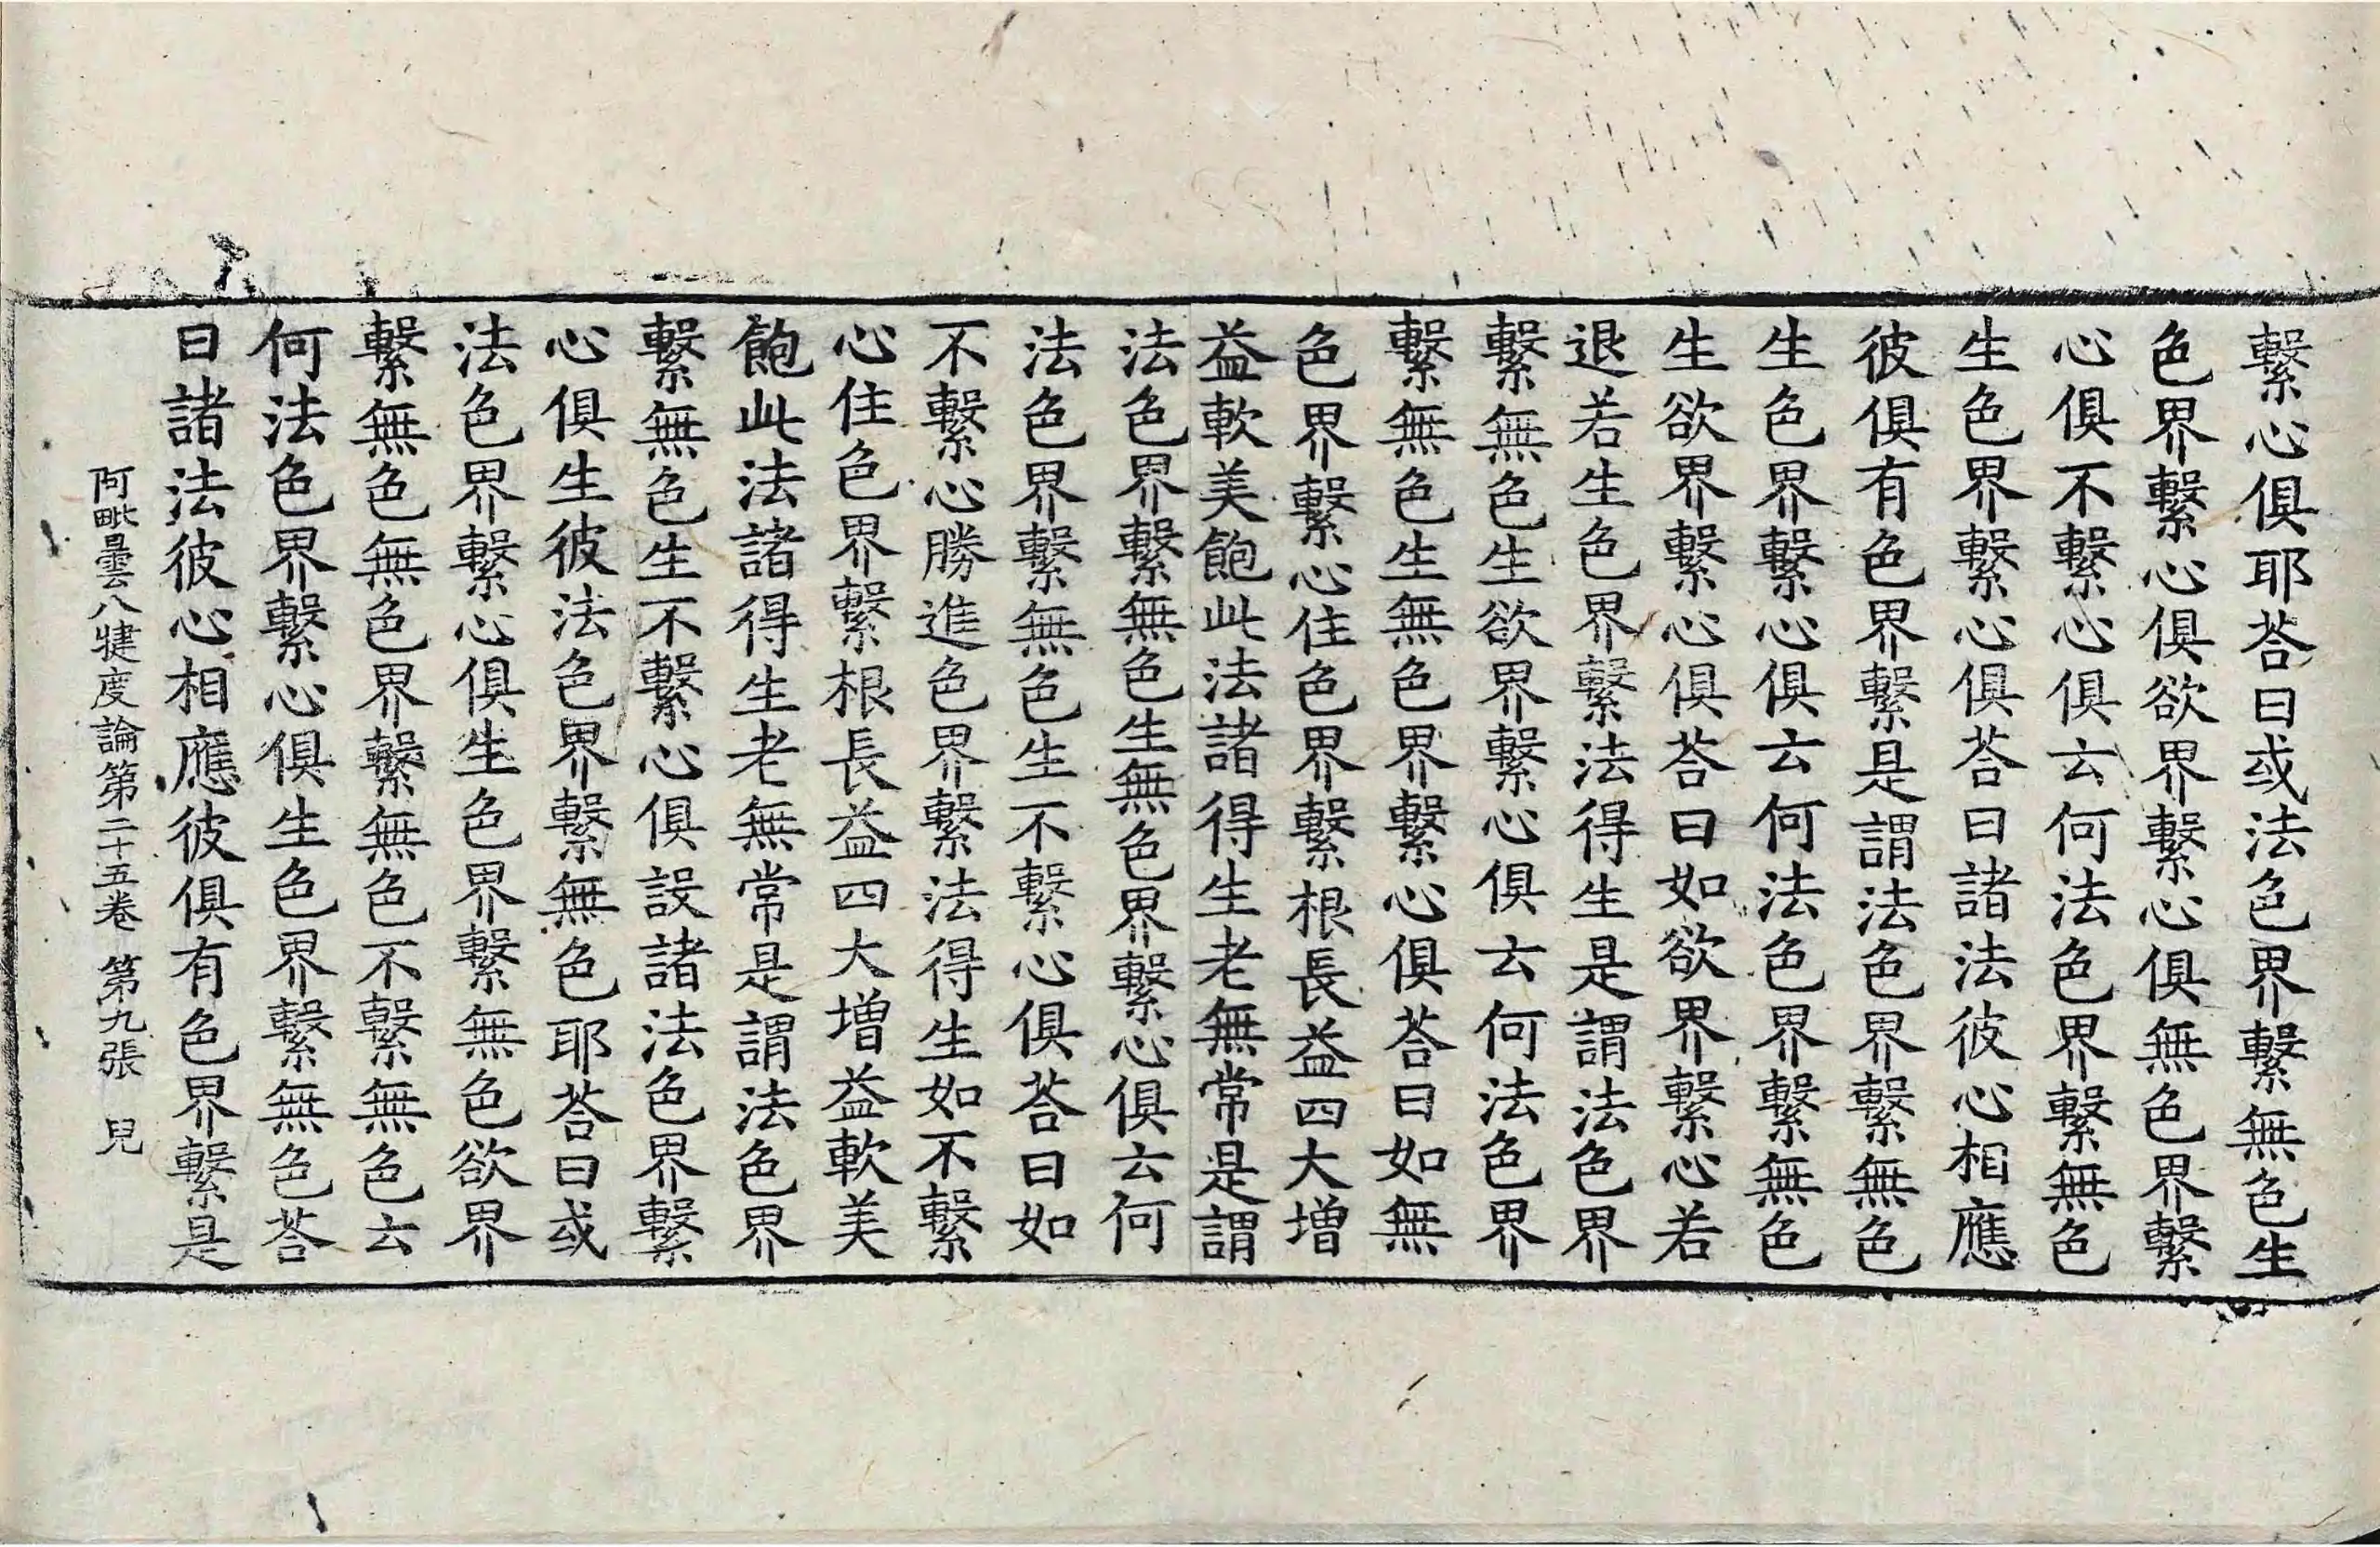 繫心俱耶荅曰或法色界繫無色生
色界繫心俱欲界繫心俱無色界繫
心俱不繫心俱云何法色界繫無色
生色界繫心俱荅曰諸法彼心相應
彼俱有色界繫是謂法色界繫無色
生色界繫心俱云何法色界繫無色
生欲界繫心俱荅曰如欲界繫心若
退若生色界繫法得生是謂法色界
繫無色生欲界繫心俱云何法色界
繫無色生無色界繫心俱荅曰如無
色界繫心住色界繫根長益四大增
益軟美飽此法諸得生老無常是謂
法色界繫無色生無色界繫心俱云何
法色界繫無色生不繫心俱荅曰如
不繫心勝進色界繫法得生如不繫
心住色界繫根長益四大增益軟美
飽此法諸得生老無常是謂法色界
繫無色生不繫心俱設諸法色界繫
心俱生彼法色界繫無色耶荅曰或
法色界繫心俱生色界繫無色欲界
繫無色無色界繫無色不繫無色云
何法色界繫心俱生色界繫無色荅
曰諸法彼心相應彼俱有色界繫是
阿毗曇八犍度論第二十五卷 第九張 皃